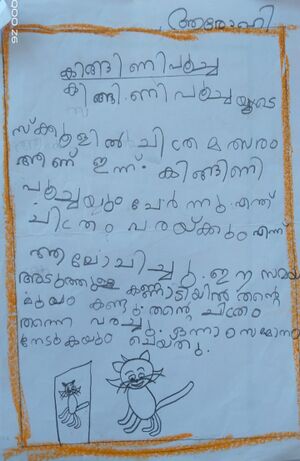 ആരോഹി
കിങ്ങിണിപൂച്ച
കിങ്ങിണി പൂച്ചയുടെ
സ്ക്കൂളിൽ ചിത്ര മത്സരം
ആണ് ഇന്ന്. കിങ്ങിണി
പൂച്ചയും ചേർന്നു. എന്ത്
ചിത്രം വരയ്ക്കും എന്ന്
ആലോചിച്ചു. ഈ സമയം
അടുത്തുള്ള കണ്ണാടിയിൽ തന്റെ
മുഖം കണ്ടു. തന്റെ ചിത്രം
തന്നെ വരച്ചു. ഒന്നാം സമ്മാനം
നേടുകയും ചെയ്തു.